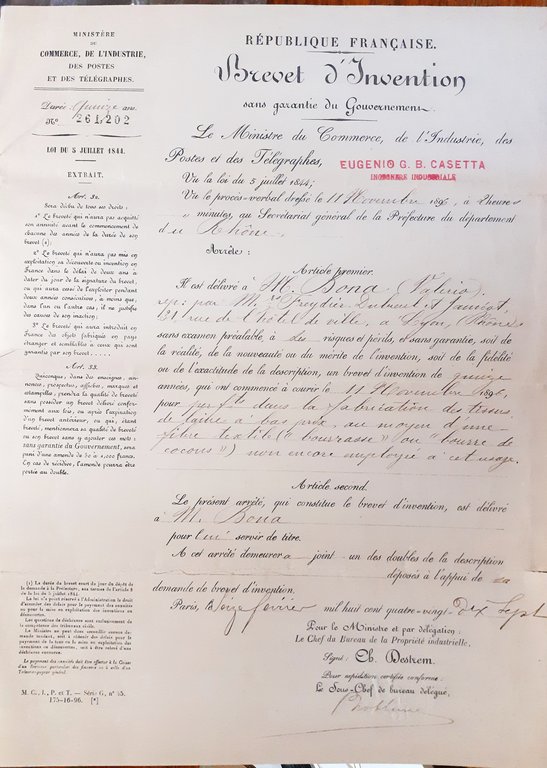 MINISTÈRE
DU
COMMERCE, DE L'INDUSTRIE,
DES POSTES
ET DES TÉLÉGRAPHES.
Durée: Quinze ans.
N° 261,202
LOI DU 5 JUILLET 1844.
EXTRAIT.
Art. 32.
Sera déchu de tous ses droits:
1° Le breveté qui n'aura pas acquitté
son annuité avant le commencement de
chacune des années de la durée de son
brevet (1);
2° Le breveté qui n'aura pas mis en
exploitation sa découverte ou invention en
France dans le délai de deux ans à
dater du jour de la signature du brevet,
ou qui aura cessé de l'exploiter pendant
deux années consécutives, à moins que,
dans l'un ou l'autre cas, il ne justifie
des causes de son inaction;
3° Le breveté qui aura introduit en
France des objets fabriqués en pays
étranger et semblables à ceux qui sont
garantis par son brevet.....
Art. 33.
Quiconque, dans des enseignes, an-
nonces, prospectus, affiches, marques et
estampilles, prendra la qualité de breveté
sans posséder un brevet délivré confor-
mément aux lois, ou après l'expiration
d'un brevet antérieur, ou qui, étant
breveté, mentionnera sa qualité de breveté
ou son brevet sans y ajouter ces mots:
sans garantie du Gouvernement, sera
puni d'une amende de 50 à 1,000 francs.
En cas de récidive, l'amende pourra être
portée au double.
(1) La durée du brevet court du jour du dépôt de
la demande à la Préfecture, aux termes de l'article 8
de la loi du 5 juillet 1844.
La loi n'a point réservé à l'Administration le droit
d'accorder des délais pour le payement des annuités
ou pour la mise en exploitation des inventions ou
découvertes.
Les questions de déchéance sont exclusivement de
la compétence des tribunaux civils.
Le Ministre ne peut donc accueillir aucune de-
mande tendant, soit à obtenir des délais pour le
payement de la taxe ou la mise en exploitation des
inventions ou découvertes, soit à être relevé d'une
déchéance encourue.
Le payement des annuités doit être effectué à la Caisse
d'un Receveur particulier des finances ou à celle d'un
Trésorier-payeur général.
M. C., I., P. et T. — Série G, n° 15.
175-16-96. [*]
RÉPUBLIQUE FRANÇAISE.
Brevet d'Invention
sans garantie du Gouvernement.
Le Ministre du Commerce, de l'Industrie, des
Postes et des Télégraphes,
EUGENIO G. B. CASETTA
INGEGNERE INDUSTRIALE
Vu la loi du 5 juillet 1844;
Vu le procès-verbal dressé le 11 Novembre 1896, à 2 heures
" minutes, au Secrétariat général de la Préfecture du département
du Rhône.
Arrête:
Article premier.
Il est délivré à M. Bona (Valerio),
rep. par M.
rue de l'hôtel de ville, à Lyon, (Rhône)
sans examen préalable, à ses risques et périls, et sans garantie, soit de
la réalité, de la nouveauté ou du mérite de l'invention, soit de la fidélité
ou de l'exactitude de la description, un brevet d'invention de quinze
années, qui ont commencé à courir le 11 Novembre 1896,
pour perfts dans la fabrication des tissus
de laine à bas prix, au moyen d'une
fibre textile ("bourrasse" ou "bourre de
cocons") non encore employée à cet usage.
Article second.
Le présent arrêté, qui constitue le brevet d'invention, est délivré
à M. Bona
pour lui servir de titre.
A cet arrêté demeurera joint un des doubles de la description
déposés à l'appui de sa
demande de brevet d'invention.
Paris, le onze février mil huit cent quatre-vingt-dix sept
Pour le Ministre et par délégation:
Le Chef du Bureau de la Propriété industrielle,
Signé: Ch. Destrem.
Pour expédition certifiée conforme:
Le Sous-Chef de bureau délégué,